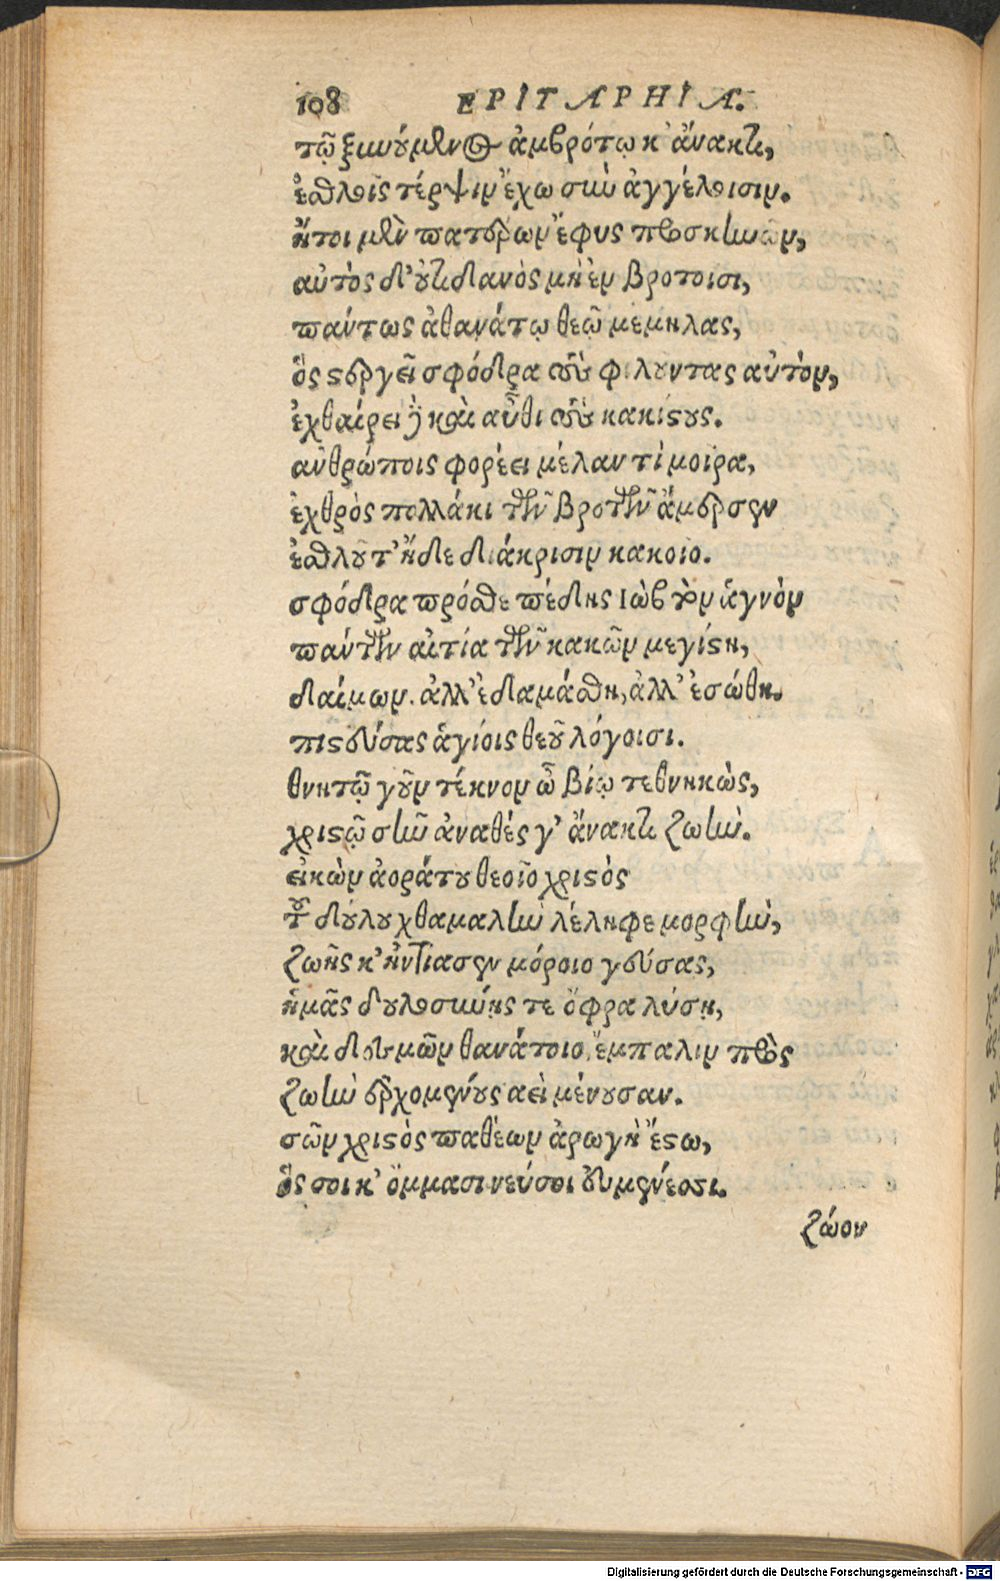 108 EPITAPHIA.
τῷ ξυνούμενος ἀμβρότῳ κ' ἄνακτι,
ἐσθλοῖς τέρψιν ἔχω σὺν ἀγγέλοισιν.
ἤτοι μὲν πατέρων ἔφυς προσηνῶν,
αὐτὸς δ' οὐτιδανὸς μὴ ἐν βροτοισι,
πάντως ἀθανάτῳ θεῷ μεμηλας,
ὃς στέργει σφόδρα τοὺς φιλοῦντας αὐτὸν,
ἐχθαίρει δὲ καὶ αὖθι τοὺς κακίστους.
ἀνθρώποις φορέει μέλαν τὶ μοῖρα,
ἐχθρὸς πολλάκι τῶν βροτῶν ἄμερσεν
ἐσθλοῦ τ' ἠδε διάκρισιν κακοιο.
σφόδρα πρόσθε πέδης Ιὼβ τὸν ἁγνὸν
πάντων αἰτία τῶν κακῶν μεγίστη,
δαίμων. ἀλλ' ἐδαμάσθη, ἀλλ' ἐσώθη.
πιστεύσας ἁγίοις θεοῦ λόγοισι.
θνητῷ γοῦν τέκνον ὦ βίῳ τεθνηκὼς,
χριστῷ σὴν ἀναθές γ' ἄνακτι ζωὴν.
εἰκὼν ἀοράτου θεοῖο χριστὸς
τοῦ δούλου χθαμαλὴν λέληφε μορφὴν,
ζωῆς κ' ἠντίασεν μόροιο γεύσας,
ἡμᾶς δουλοσύνης τε ὄφρα λύσῃ,
καὶ δεσμῶν θανάτοιο, ἔμπαλιν πρὸς
ζωὴν ἐρχομένους αεὶ μένουσαν.
σῶν χριστὸς παθέων ἀρωγὴ ἔστω,
ὅς σοι κ' ὄμμασι νεύσοι εὐμενέεσσι.
ζώον
Digitalisierung gefördert durch die Deutsche Forschungsgemeinschaft - DFG